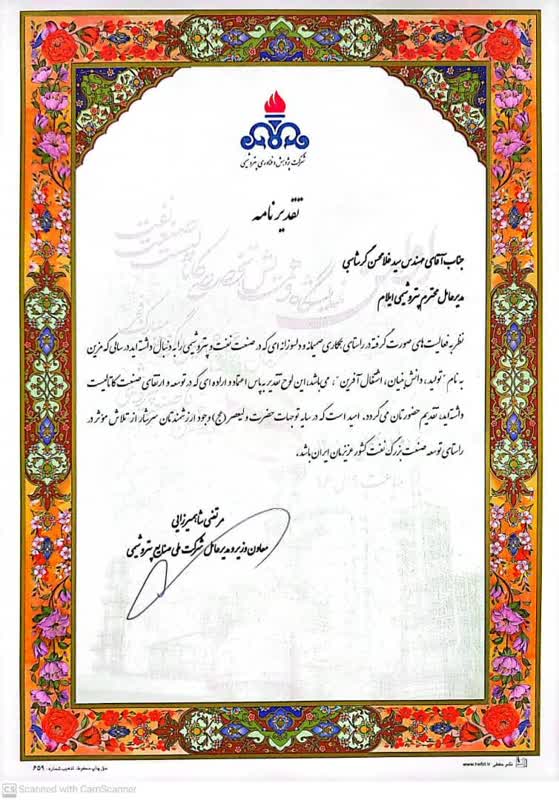 شرکت پژوهش و فناوری پتروشیمی
تقدیرنامه
جناب آقای مهندس سید غلامحسن گرشاسبی
مدیرعامل محترم پتروشیمی ایلام
نظر به فعالیت‌های صورت گرفته در راستای همکاری صمیمانه و دلسوزانه ای که در صنعت نفت و پتروشیمی را به دنبال داشته‌اید در سالی که مزین
به نام "تولید، دانش بنیان، اشتغال آفرین"، می‌باشد، این لوح تقدیر به پاس اعتماد و اراده ای که در توسعه و ارتقای صنعت کاتالیست
داشته‌اید، تقدیم حضورتان می گردد. امید است که در سایه توجهات حضرت ولیعصر (عج) وجود ارزشمندتان سرشار از تلاش مؤثر در
راستای توسعه صنعت بزرگ نفت کشور عزیزمان ایران باشد.
مرتضی شاهمیرزایی
معاون وزیر و مدیرعامل شرکت ملی صنایع پتروشیمی
حق چاپ محفوظ. تذهیب شماره: ۶۵۹
www.hafzi.ir
CS Scanned with CamScanner